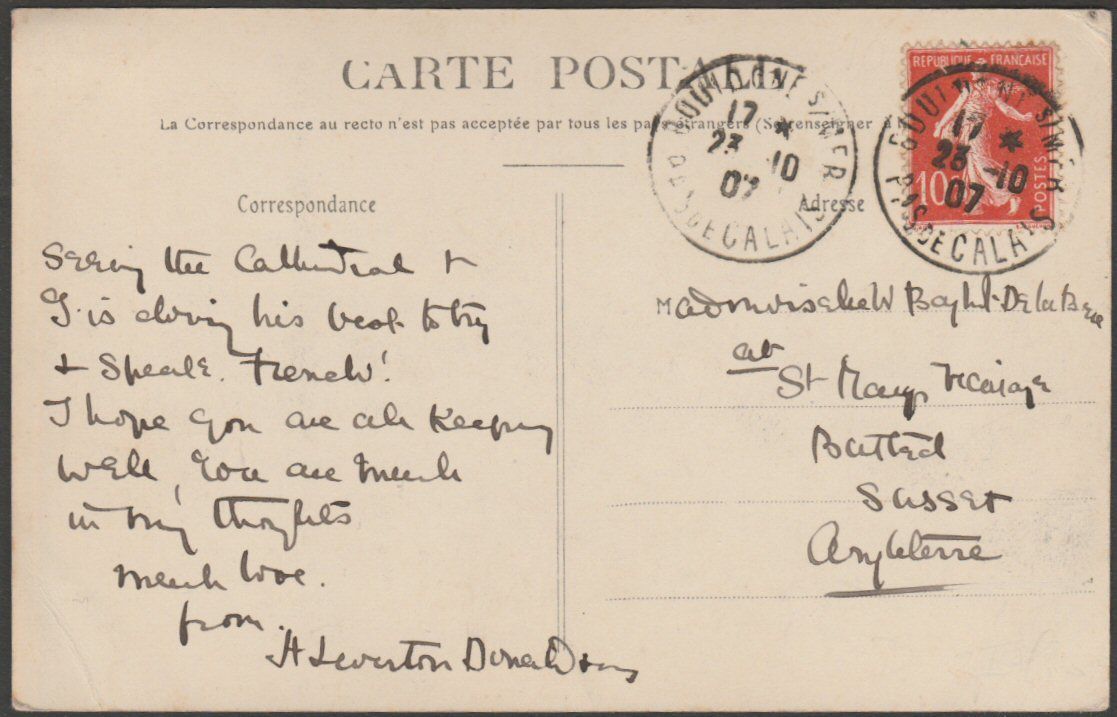 CARTE POSTALE
La Correspondance au recto n'est pas acceptée par tous les pays étrangers (Se renseigner à
Correspondance
Adresse
RÉPUBLIQUE FRANÇAISE
10c POSTES
BOULOGNE S/MER
17 *
23 -10
07
PAS DE CALAIS
BOULOGNE S/MER
17 *
23 -10
07
PAS DE CALAIS
Seeing the Cathedral +
G. is doing his best to try
+ speak French!
I hope you are all keeping
well, you are much
in my thoughts
much love.
from.
H Leverton Donaldson
Mademoiselle W
at
St Marys Vicarage
Battel
Sussex
Angleterre